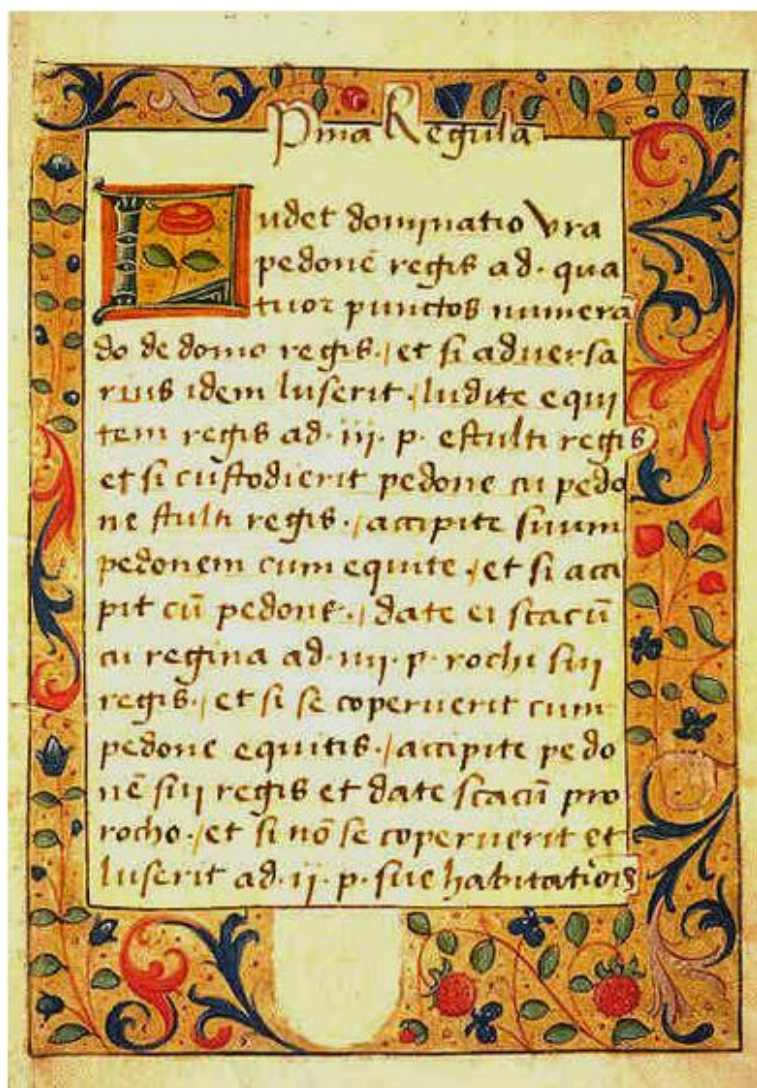 Pma Regula
Ludet dominatio vra
pedonē regis ad· qua
tuor punctos numera
do de domo regis·/et si adversa
rius idem luserit·/ludite equi
tem regis ad· iij· p· estulti regis
et si custodierit pedone cu pedo
ne stulti regis·/accipite suum
pedonem cum equite·/et si acci
pit cū pedone·/date ei scacū
cu regina ad· iiij· p· rochi sui
regis·/et si se coperuerit cum
pedone equitis·/accipite pedo
nē sui regis et date scacū pro
rocho·/et si nō se coperuerit et
luserit ad· ij· p· sue habitatiois